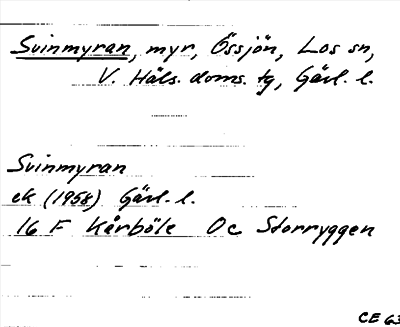 Svinmyran, myr, Össjön, Los sn,
V. Häls. doms. tg, Gävl. l.
Svinmyran
ek (1958) Gävl. l.
16 F Kårböle Oc Storryggen
CE 63